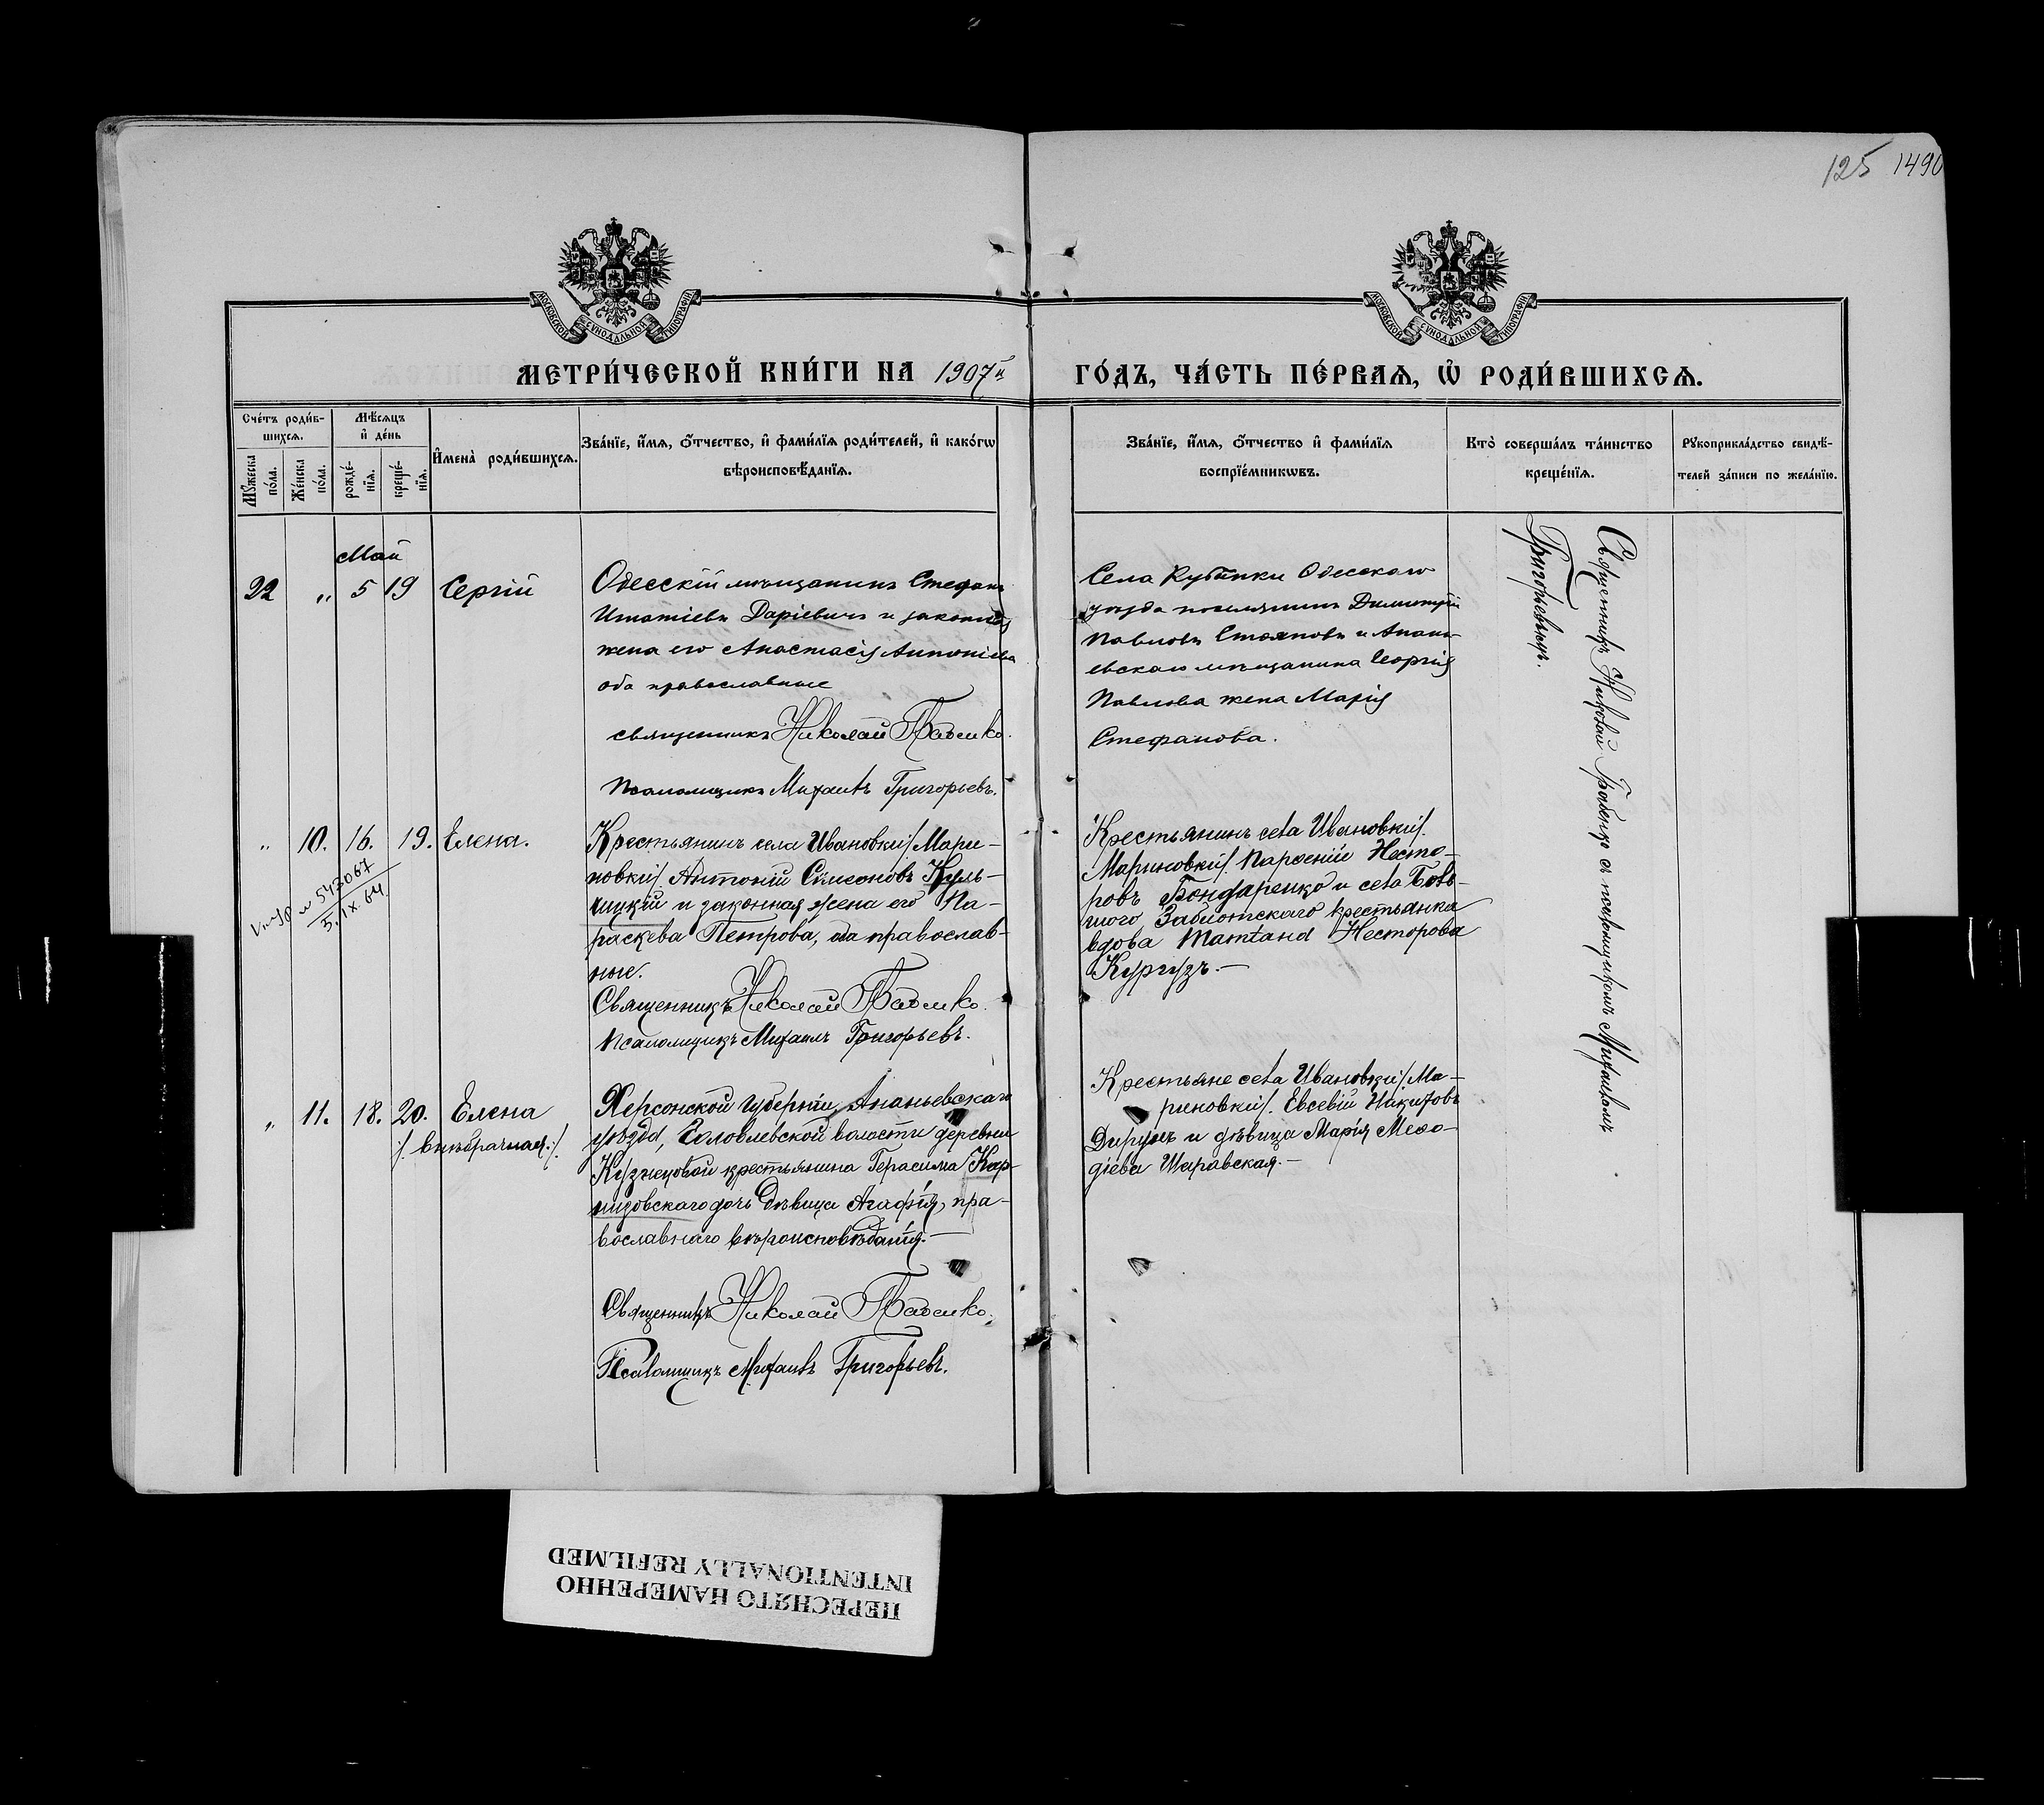 125 1490
МОСКОВСКОЙ СѴНОДАЛЬНОЙ ТИПОГРАФІИ
МОСКОВСКОЙ СѴНОДАЛЬНОЙ ТИПОГРАФІИ
МЕТРИ́ЧЕСКОЙ КНИ́ГИ НА 1907й ГО́ДЪ, ЧА́СТЬ ПЕ́РВАѦ, Ѡ҆ РОДИ́ВШИХСѦ.
Сче́тъ роди́в-
шихсѧ.
Мꙋ́жеска
по́ла.
Же́нска
по́ла.
Мѣ́сѧцъ
и҆ де́нь
рожде́-
нїѧ.
креще́-
нїѧ.
И҆мена̀ роди́вшихсѧ.
Зва́нїе, и҆́мѧ, ѻ҆́тчество, и҆ фами́лїѧ роди́телей, и҆ како́гѡ
вѣроисповѣ́данїѧ.
Зва́нїе, и҆́мѧ, ѻ҆́тчество и҆ фами́лїѧ
воспрїе́мникѡвъ.
Кто̀ соверша́лъ та́инство
креще́нїѧ.
Рꙋкоприкла́дство свидѣ́-
телей за́писи по жела́нїю.
Май
22 " 5 19 Сергій
Одесскій мѣщанинъ Стефанъ
Игнатіевъ Даріевичъ и законная
жена его Анастасія Антоніева
оба православные
священникъ Николай
Псаломщикъ Михаилъ Григорьевъ.
Села Кубанки Одесского
уѣзда поселянинъ Димитрій
Павловъ Стояновъ и Анань-
евскаго мѣщанина Георгія
Павлова жена Марія
Стефанова.
Священникъ Николай съ псаломщикомъ Михаиломъ
Григорьевымъ.
" 10. 16. 19. Елена.
№ 547067
5.IX.64
Крестьянинъ села Ивановки/. Мари-
новки/. Антоній Симеоновъ Куль-
чицкій и законная жена его Па-
раскева Петрова, оба православ-
ные.
Священникъ Николай
Псаломщикъ Михаилъ Григорьевъ.
Крестьянинъ села Ивановки/.
Мариновки/. Парѳеній Несто-
ровъ Бондаренко и села Боль-
шого крестьянка
вдова Несторова
Кургузъ.—
" 11. 18. 20. Елена
/. внѣбрачная:/.
Херсонской губерніи, Ананьевскаго
уѣзда, волости деревни
Кузнецовой крестьянина Герасима Кар-
дочь дѣвица Агафія, пра-
вославнаго вѣроисповѣданія.—
Священникъ Николай
Псаломщикъ Михаилъ Григорьевъ.
Крестьяне села Ивановки/. Ма-
риновки/. Евсевій
и дѣвица Марія Меѳо-
діева Шаравская.—
ПЕРЕСНЯТО НАМЕРЕННО
INTENTIONALLY REFILMED